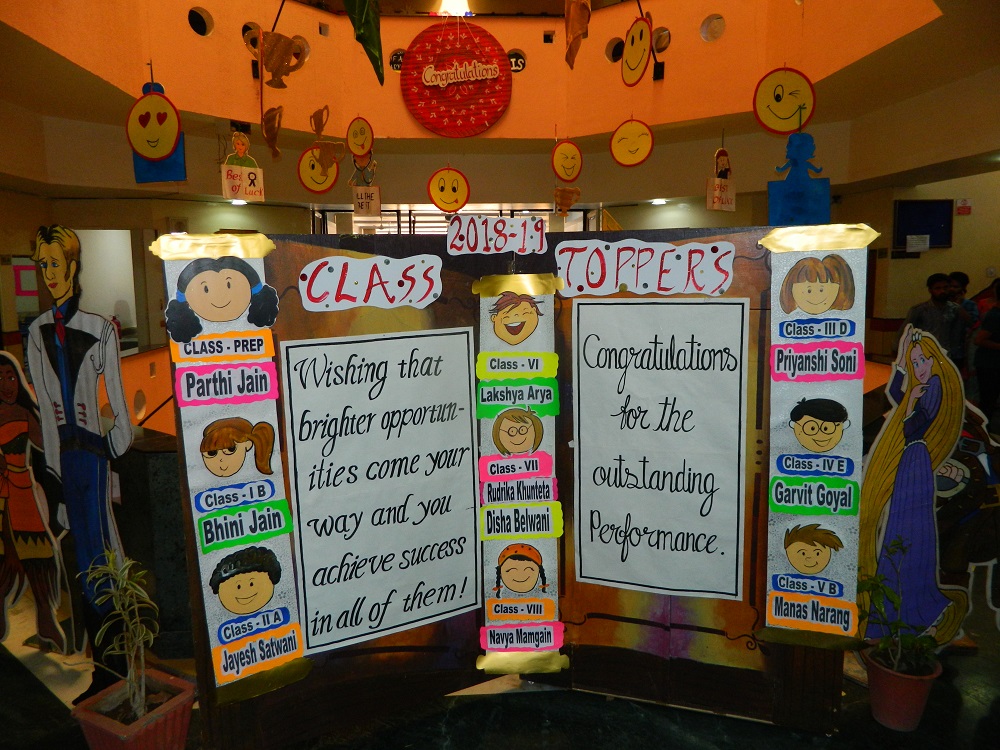 Congratulations
2018-19
CLASS TOPPERS
CLASS - PREP
Parthi Jain
Class - I B
Bhini Jain
Class - II A
Jayesh Satwani
Wishing that
brighter opportun-
ities come your
way and you
achieve success
in all of them!
Class - VI
Lakshya Arya
Class - VII
Rudrika Khunteta
Disha Belwani
Class - VIII
Navya Mamgain
Congratulations
for the
outstanding
Performance.
Class - III D
Priyanshi Soni
Class - IV E
Garvit Goyal
Class - V B
Manas Narang
Best
of Luck